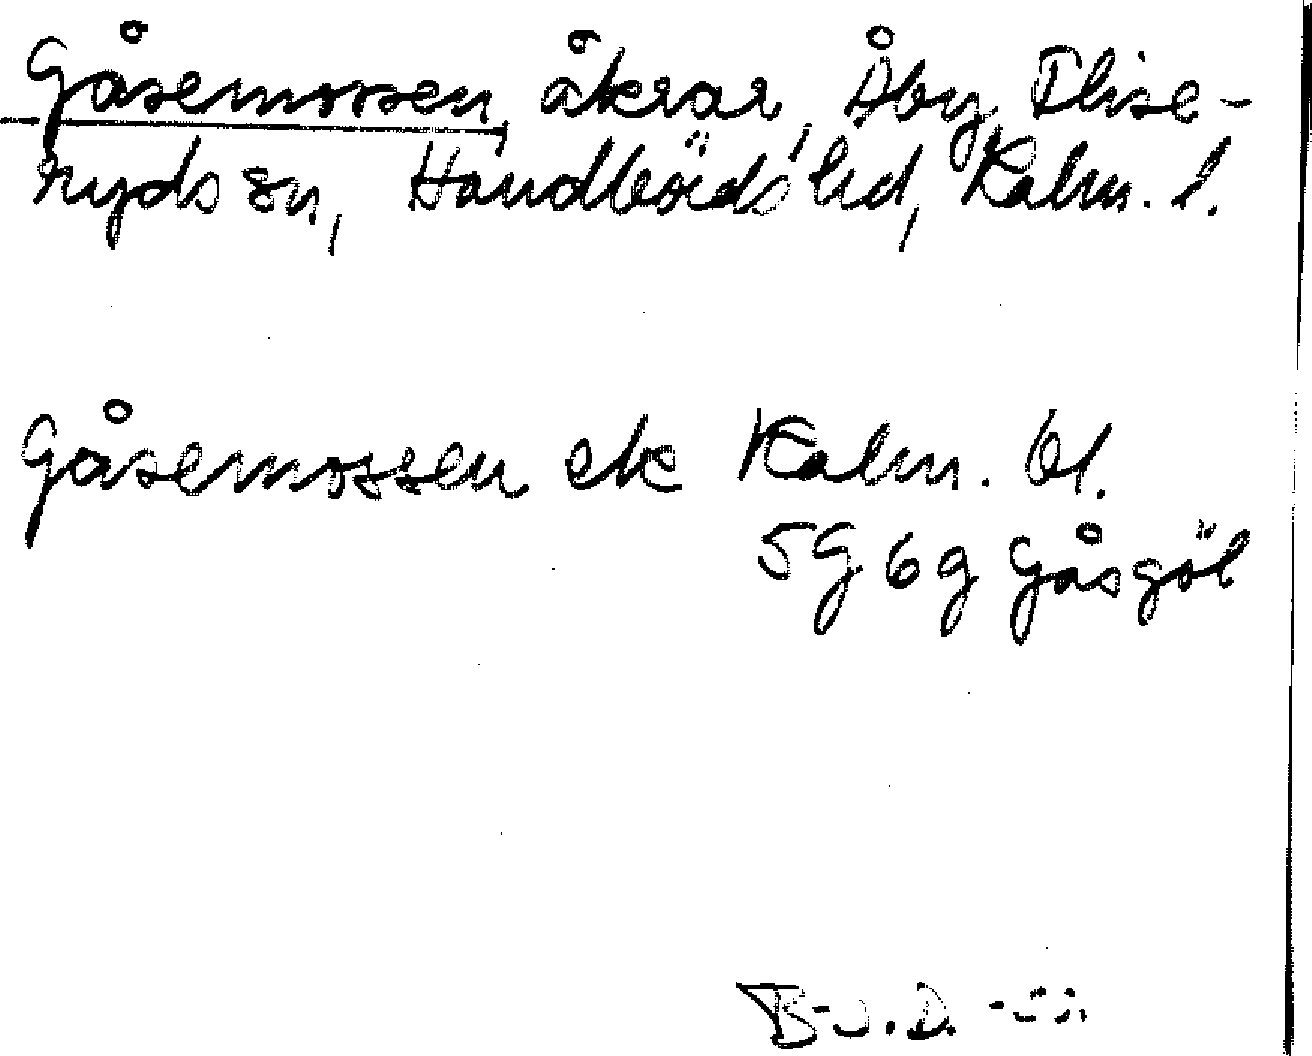 Gåsemossen, åkrar, Åby, Flise-
ryds sn, Handbörds hd, Kalm. l.
Gåsemossen ek Kalm. bl.
5G 6g Gåsgöl
B-J. D.